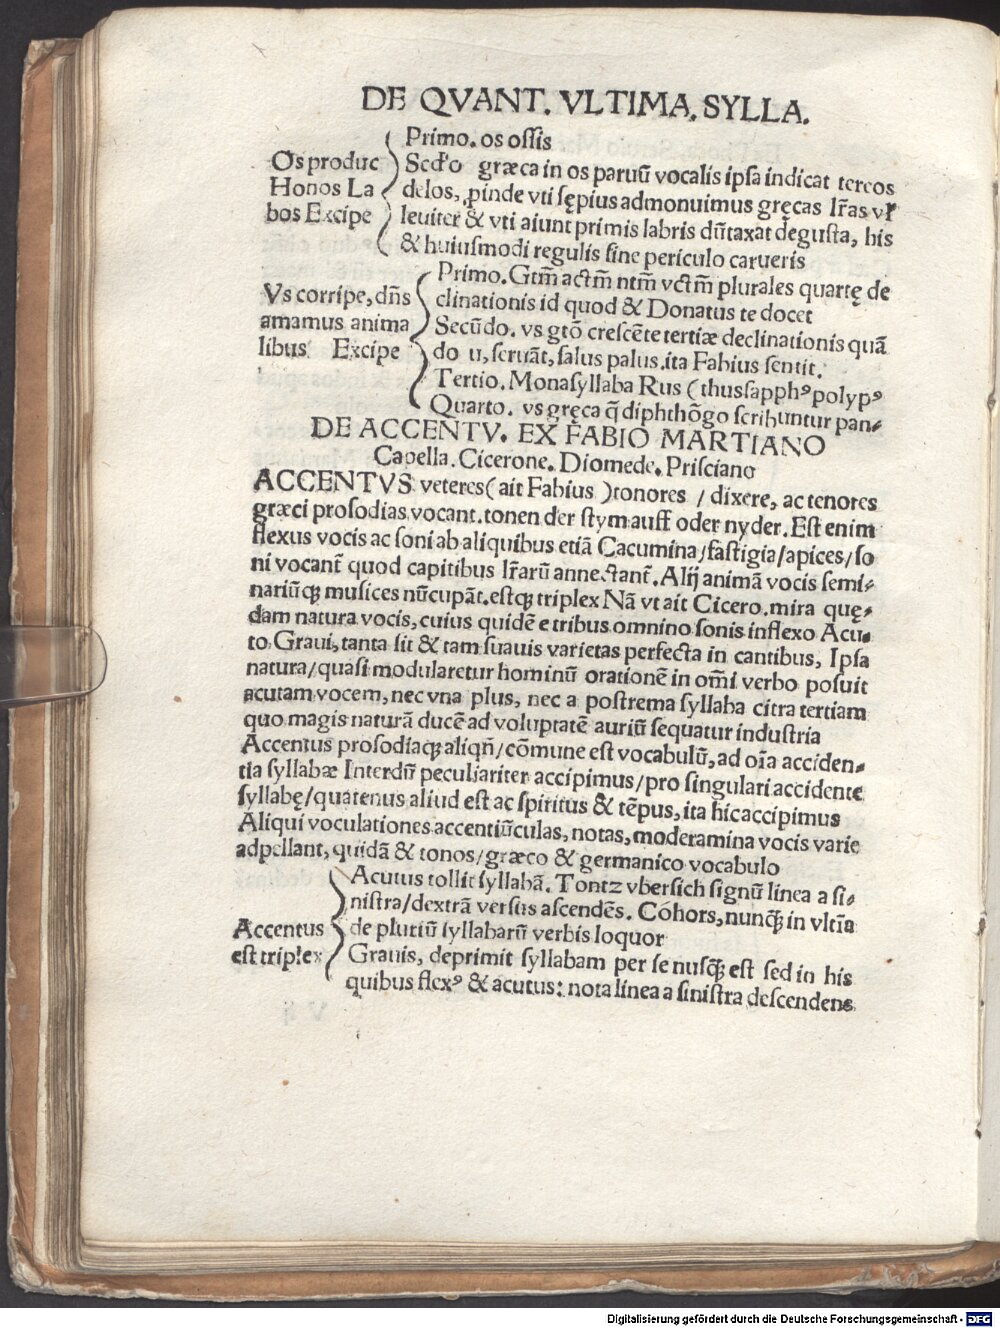 DE QVANT. VLTIMA. SYLLA.
Os produc
Honos La
bos Excipe
Primo. os ossis
Scd'o græca in os paruū vocalis ipsa indicat tereos
delos, ꝓinde vti sępius admonuimus gręcas lr̃as vł
leuiter & vti aiunt primis labris dūtaxat degusta, his
& huiusmodi regulis sine periculo carueris
Vs corripe, dn̄s
amamus anima
libus Excipe
Primo. Gtm̄ actm̄ ntm̄ vctm̄ plurales quartę de
clinationis id quod & Donatus te docet
Secūdo. vs gtō crescēte tertiæ declinationis quā
do u, seruāt, salus palus. ita Fabius sentit.
Tertio. Monasyllaba Rus (thus sapphꝰ polypꝰ
Quarto. vs gręca q̄ diphthōgo scribuntur pan⸗
DE ACCENTV. EX FABIO MARTIANO
Capella. Cicerone. Diomede. Prisciano
ACCENTVS veteres (ait Fabius) tonores / dixere, ac tenores
græci prosodias vocant. tonen der stym auff oder nyder. Est enim
flexus vocis ac soni ab aliquibus etiā Cacumina/fastigia/apices/so
ni vocant̄ quod capitibus lr̃arū annectant̄. Alij animā vocis semi⸗
nariūq̨ musices nūcupāt. estq̨ triplex Nā vt ait Cicero. mira quę⸗
dam natura vocis, cuius quidē e tribus omnino sonis inflexo Acu⸗
to Graui, tanta sit & tam suauis varietas perfecta in cantibus, Ipsa
natura/quasi modularetur hominū orationē in om̄i verbo posuit
acutam vocem, nec vna plus, nec a postrema syllaba citra tertiam
quo magis naturā ducē ad voluptatē auriū sequatur industria
Accentus prosodiaq̨ aliqn̄/cōmune est vocabulū, ad oīa acciden⸗
tia syllabæ Interdū peculiariter accipimus/pro singulari accidente
syllabę/quatenus aliud est ac spiritus & tēpus, ita hic accipimus
Aliqui voculationes accentiūculas, notas, moderamina vocis varie
adpellant, quidā & tonos/græco & germanico vocabulo
Accentus
est triplex
Acutus tollit syllabā. Tontz vbersich signū linea a si⸗
nistra/dextrā versus ascendēs. Cóhors, nunq̨̄ in vltīa
de pluriū syllabarū verbis loquor
Grauis, deprimit syllabam per se nusq̨̄ est sed in his
quibus flexꝰ & acutus: nota linea a sinistra descendens
Digitalisierung gefördert durch die Deutsche Forschungsgemeinschaft - DFG